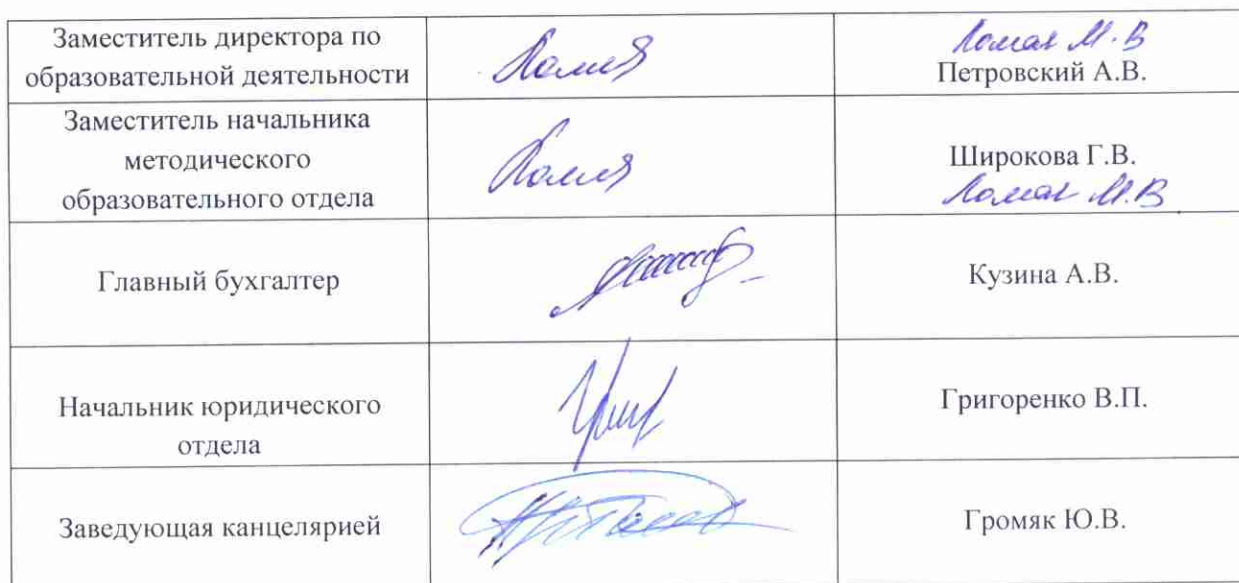 Заместитель директора по
образовательной деятельности
М.В
Петровский А.В.
Заместитель начальника
методического
образовательного отдела
Широкова Г.В.
М.В
Главный бухгалтер
Кузина А.В.
Начальник юридического
отдела
Григоренко В.П.
Заведующая канцелярией
Громяк Ю.В.